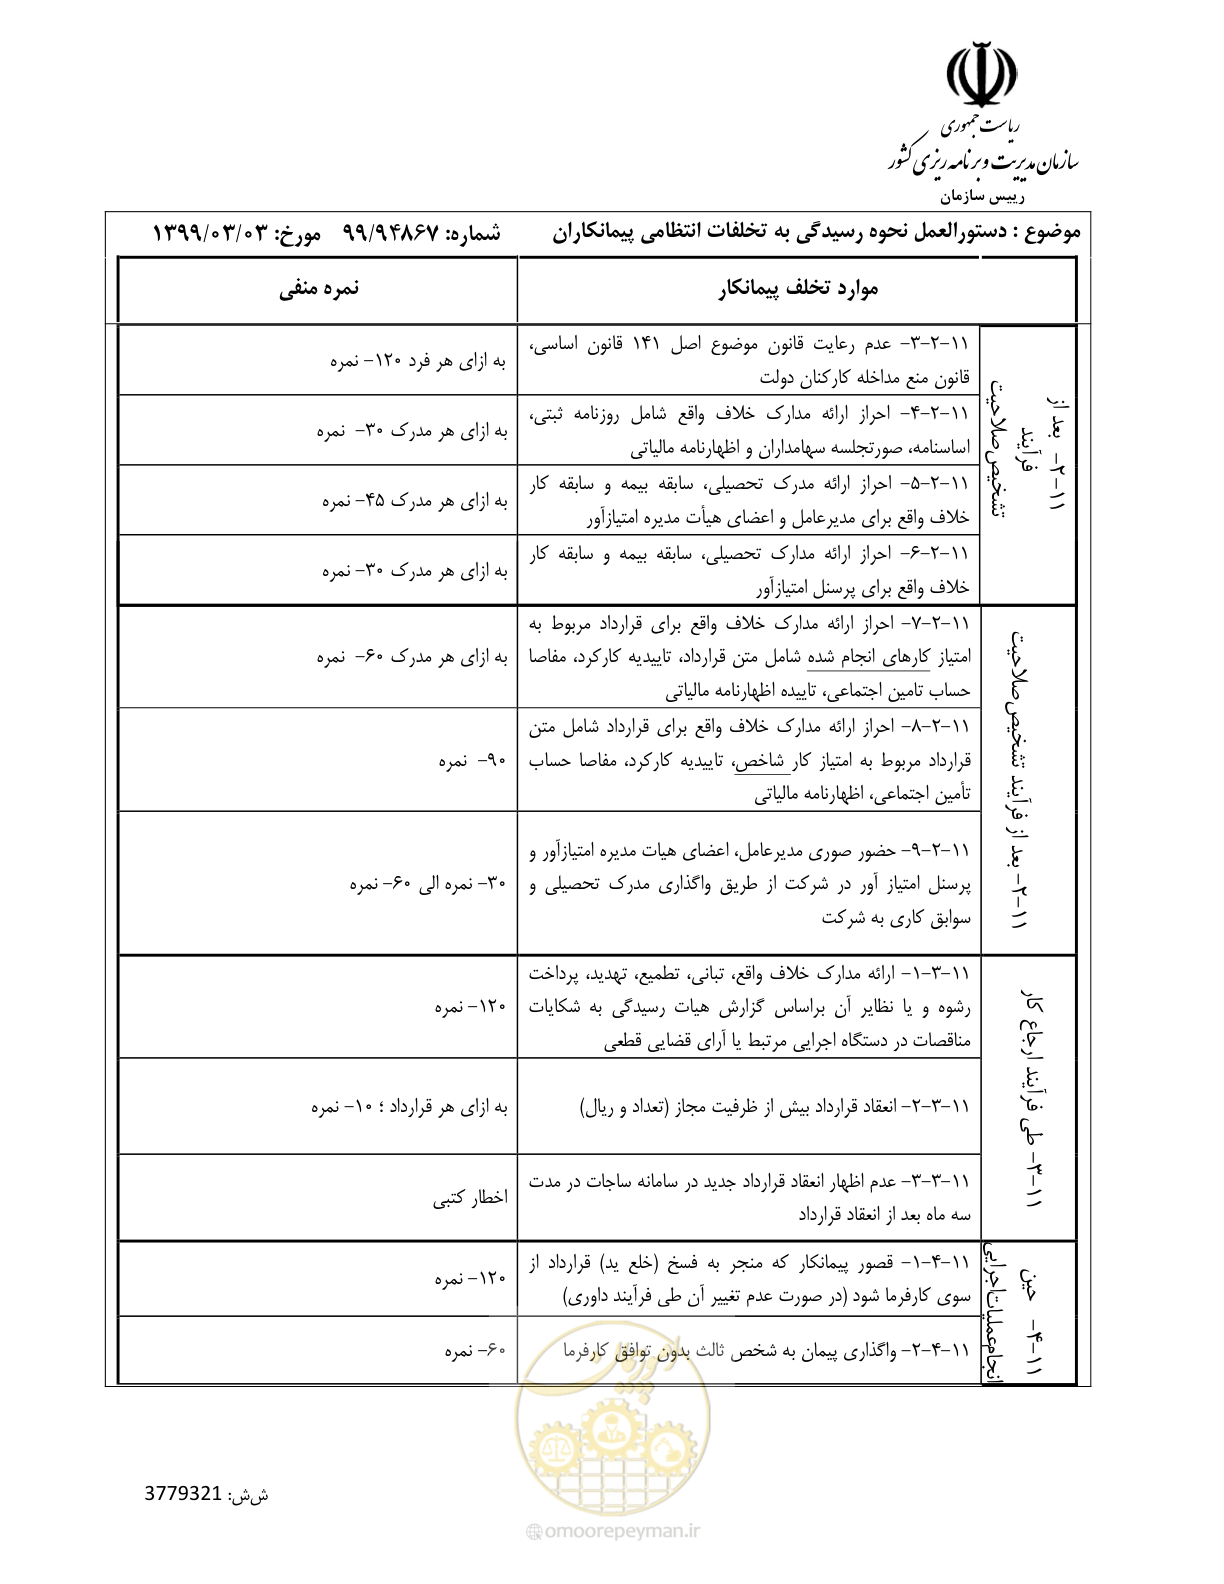 ریاست جمهوری
سازمان مدیریت و برنامه ریزی کشور
رییس سازمان
موضوع : دستورالعمل نحوه رسیدگی به تخلفات انتظامی پیمانکاران شماره: ۹۹/۹۴۸۶۷ مورخ: ۱۳۹۹/۰۳/۰۳
موارد تخلف پیمانکار
نمره منفی
۱۱-۲- بعد از
فرآیند
تشخیص صلاحیت
۱۱-۲-۳- عدم رعایت قانون موضوع اصل ۱۴۱ قانون اساسی،
قانون منع مداخله کارکنان دولت
به ازای هر فرد ۱۲۰- نمره
۱۱-۲-۴- احراز ارائه مدارک خلاف واقع شامل روزنامه ثبتی،
اساسنامه، صورتجلسه سهامداران و اظهارنامه مالیاتی
به ازای هر مدرک ۳۰- نمره
۱۱-۲-۵- احراز ارائه مدرک تحصیلی، سابقه بیمه و سابقه کار
خلاف واقع برای مدیرعامل و اعضای هیأت مدیره امتیازآور
به ازای هر مدرک ۴۵- نمره
۱۱-۲-۶- احراز ارائه مدارک تحصیلی، سابقه بیمه و سابقه کار
خلاف واقع برای پرسنل امتیازآور
به ازای هر مدرک ۳۰- نمره
۱۱-۲- بعد از فرآیند تشخیص صلاحیت
۱۱-۲-۷- احراز ارائه مدارک خلاف واقع برای قرارداد مربوط به
امتیاز کارهای انجام شده شامل متن قرارداد، تاییدیه کارکرد، مفاصا
حساب تامین اجتماعی، تاییده اظهارنامه مالیاتی
به ازای هر مدرک ۶۰- نمره
۱۱-۲-۸- احراز ارائه مدارک خلاف واقع برای قرارداد شامل متن
قرارداد مربوط به امتیاز کار شاخص، تاییدیه کارکرد، مفاصا حساب
تأمین اجتماعی، اظهارنامه مالیاتی
۹۰- نمره
۱۱-۲-۹- حضور صوری مدیرعامل، اعضای هیات مدیره امتیازآور و
پرسنل امتیاز آور در شرکت از طریق واگذاری مدرک تحصیلی و
سوابق کاری به شرکت
۳۰- نمره الی ۶۰- نمره
۱۱-۳- طی فرآیند ارجاع کار
۱۱-۳-۱- ارائه مدارک خلاف واقع، تبانی، تطمیع، تهدید، پرداخت
رشوه و یا نظایر آن براساس گزارش هیات رسیدگی به شکایات
مناقصات در دستگاه اجرایی مرتبط یا آرای قضایی قطعی
۱۲۰- نمره
۱۱-۳-۲- انعقاد قرارداد بیش از ظرفیت مجاز (تعداد و ریال)
به ازای هر قرارداد ؛ ۱۰- نمره
۱۱-۳-۳- عدم اظهار انعقاد قرارداد جدید در سامانه ساجات در مدت
سه ماه بعد از انعقاد قرارداد
اخطار کتبی
۱۱-۴- حین
انجام عملیات اجرایی
۱۱-۴-۱- قصور پیمانکار که منجر به فسخ (خلع ید) قرارداد از
سوی کارفرما شود (در صورت عدم تغییر آن طی فرآیند داوری)
۱۲۰- نمره
۱۱-۴-۲- واگذاری پیمان به شخص ثالث بدون توافق کارفرما
۶۰- نمره
امور پیمان
ش‌ش: 3779321
omoorepeyman.ir